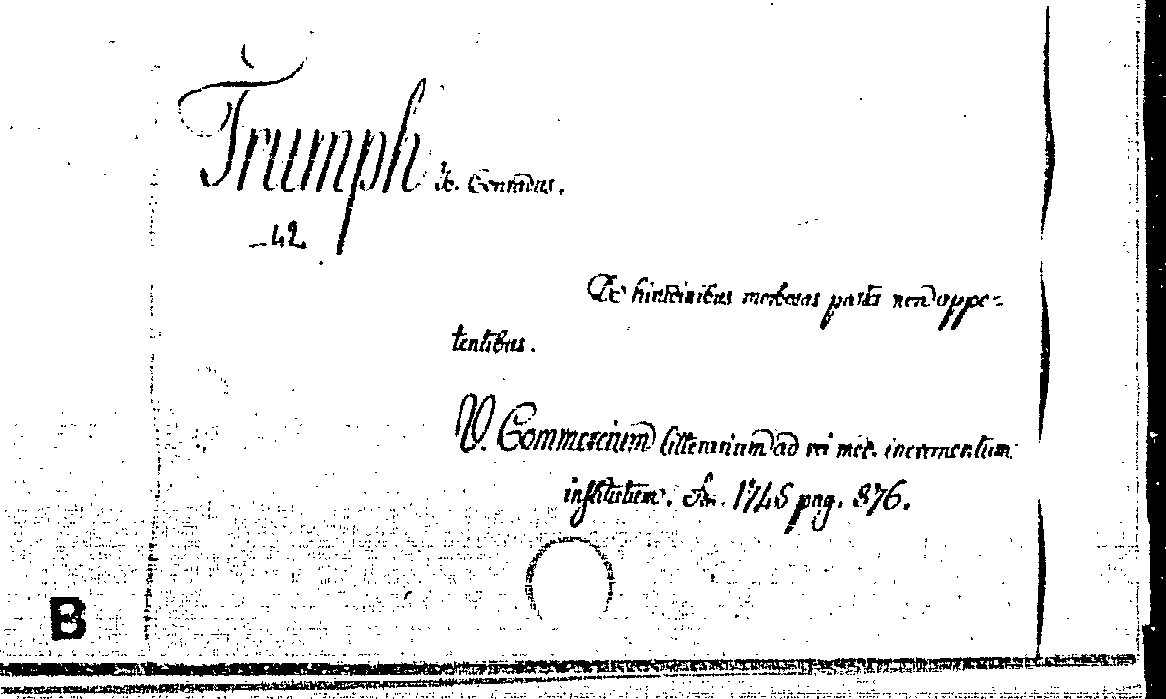 Trumph Jo. Conradus.
_42
De hirudinibus morbosas partes non appe-
tentibus.
V. Commercium litterarium ad rei med. incrementum
institutum. An. 1745 pag. 376.
B